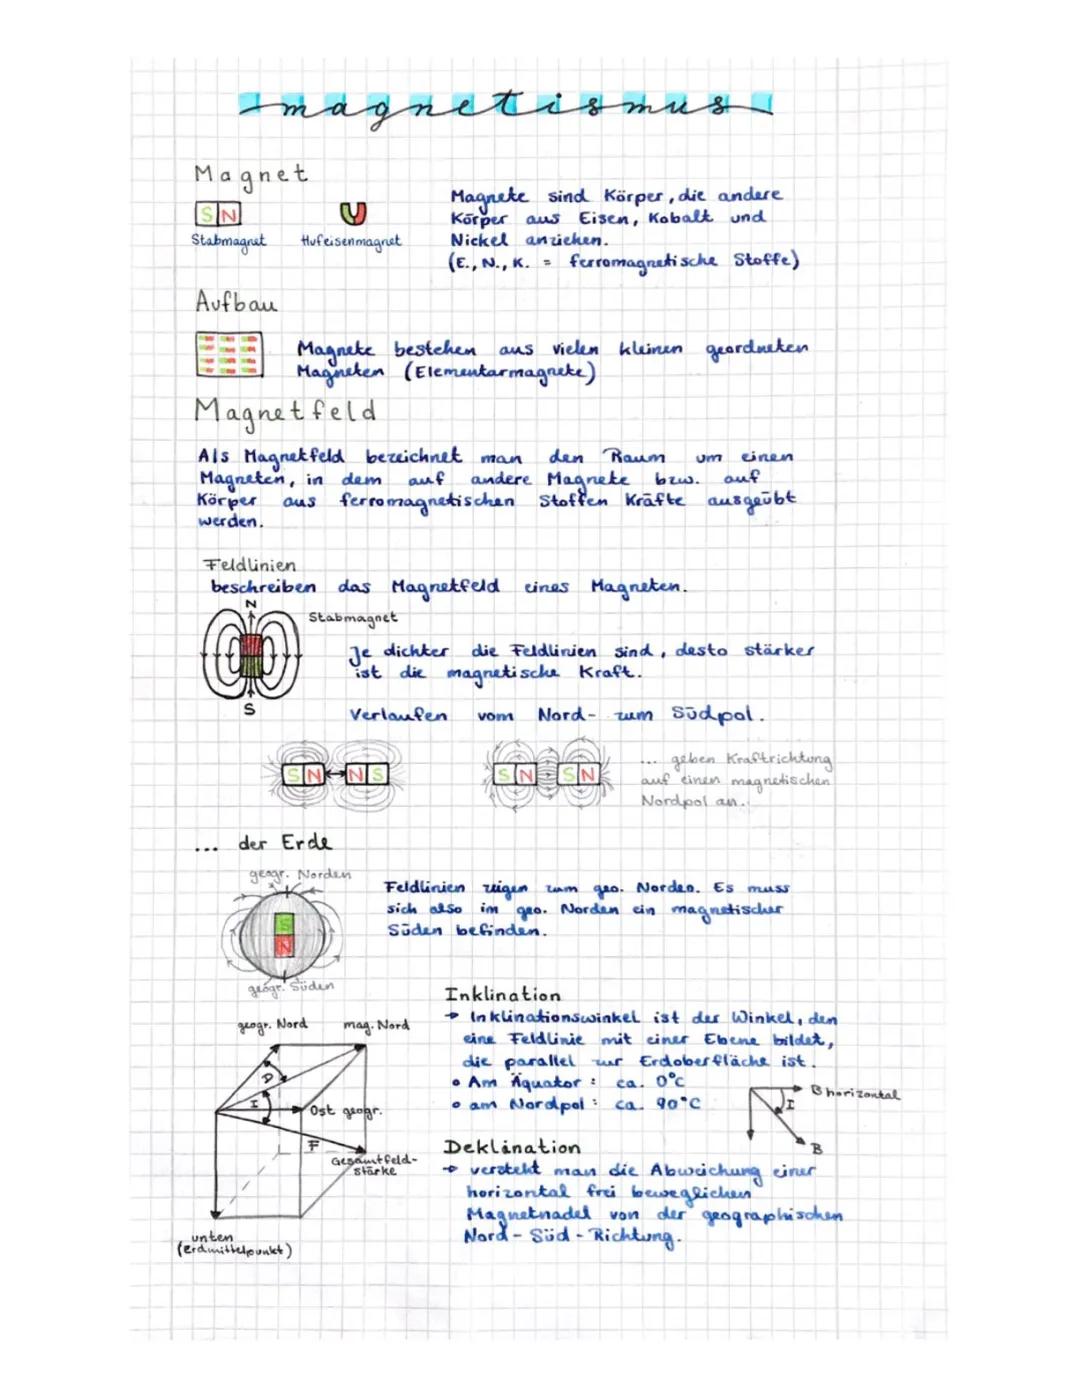 magnetismus
Magnet
S N
Stabmagnet
Hufeisenmagnet
Magnete sind Körper, die andere
Körper aus Eisen, Kobalt und
Nickel anziehen.
(E., N., K. = ferromagnetische Stoffe)
Aufbau
Magnete bestehen aus vielen kleinen geordneten
Magneten (Elementarmagnete)
Magnetfeld
Als Magnetfeld bezeichnet man den Raum um einen
Magneten, in dem auf andere Magnete bzw. auf
Körper aus ferromagnetischen Stoffen Kräfte ausgeübt
werden.
Feldlinien
beschreiben das Magnetfeld eines Magneten.
N
Stabmagnet
S
Je dichter die Feldlinien sind, desto stärker
ist die magnetische Kraft.
Verlaufen vom Nord- zum Südpol.
S N N S
S N S N
... geben Kraftrichtung
auf einen magnetischen
Nordpol an..
... der Erde
geogr. Norden
S
N
geogr. Süden
Feldlinien zeigen zum geo. Norden. Es muss
sich also im geo. Norden ein magnetischer
Süden befinden.
geogr. Nord
mag. Nord
D
I
Ost geogr.
F
Gesamtfeld-
stärke
unten
(Erdmittelpunkt)
Inklination
→ Inklinationswinkel ist der Winkel, den
eine Feldlinie mit einer Ebene bildet,
die parallel zur Erdoberfläche ist.
• Am Äquator: ca. 0°C
• am Nordpol: ca. 90°C
B horizontal
I
B
Deklination
→ versteht man die Abweichung einer
horizontal frei beweglichen
Magnetnadel von der geographischen
Nord-Süd-Richtung.